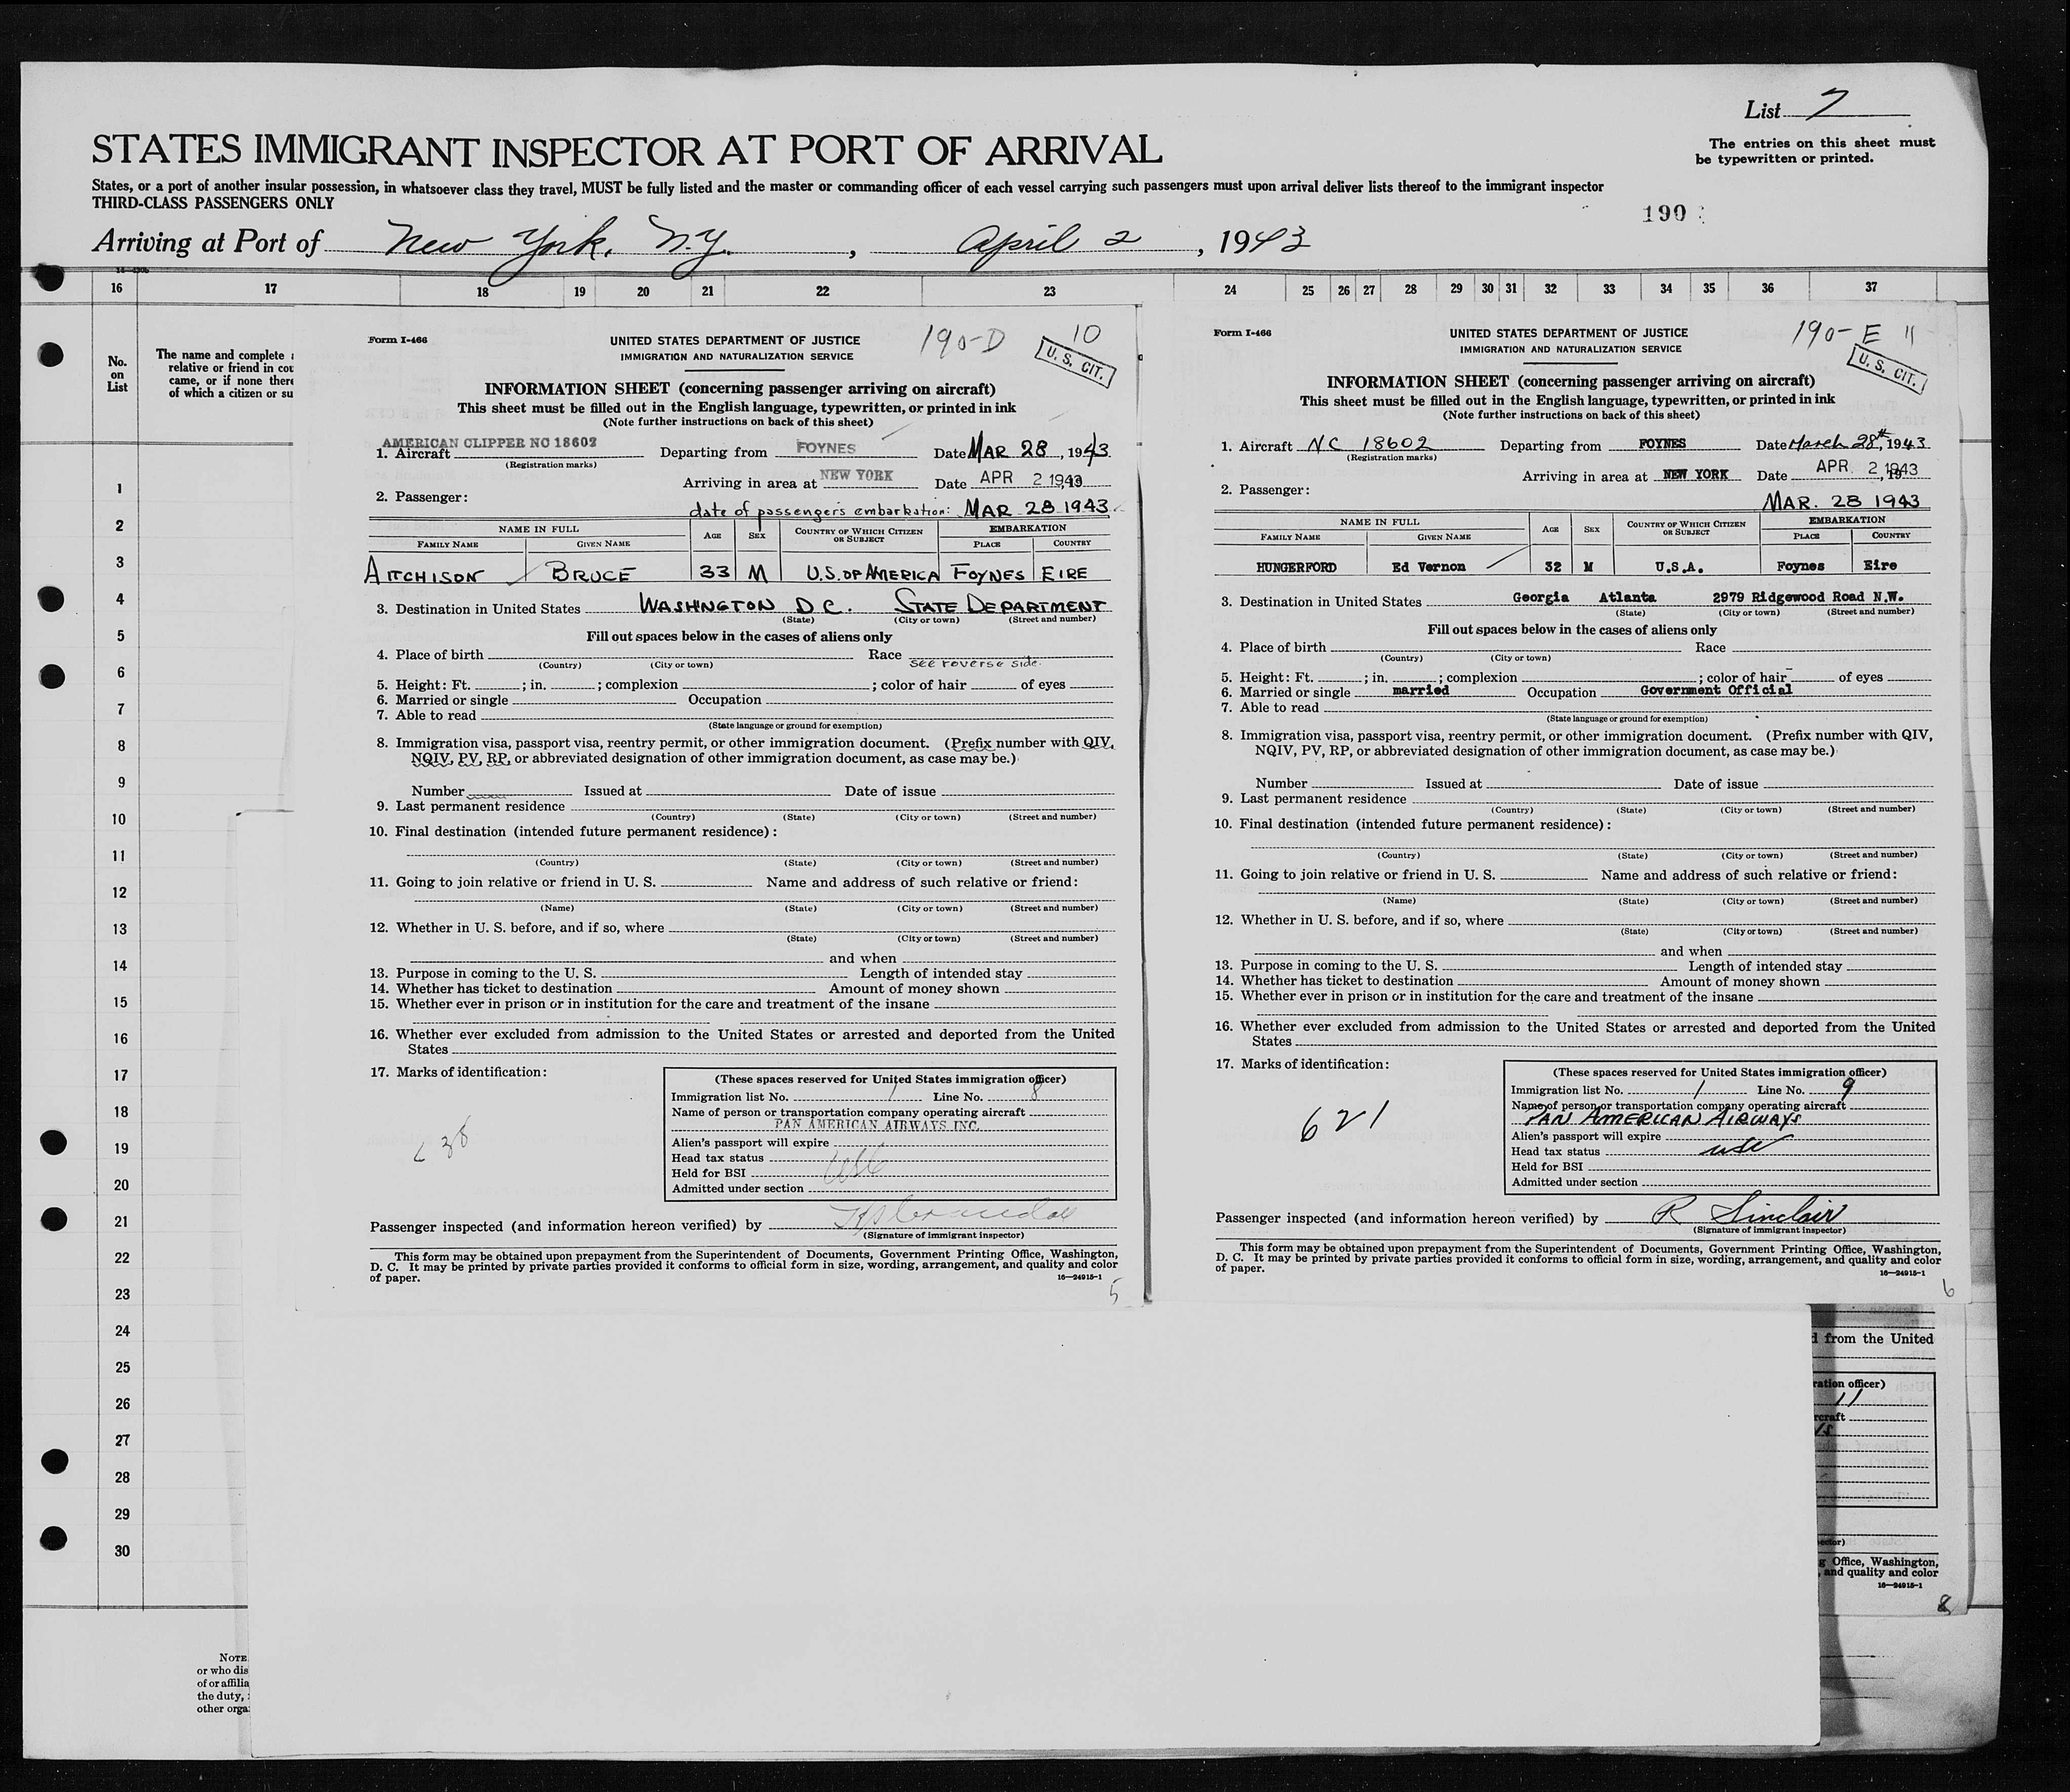 List 7
The entries on this sheet must
be typewritten or printed.
STATES IMMIGRANT INSPECTOR AT PORT OF ARRIVAL
States, or a port of another insular possession, in whatsoever class they travel, MUST be fully listed and the master or commanding officer of each vessel carrying such passengers must upon arrival deliver lists thereof to the immigrant inspector
THIRD-CLASS PASSENGERS ONLY
190
Arriving at Port of New York, N.Y., April 2, 1943
16 17 18 19 20 21 22 23 24 25 26 27 28 29 30 31 32 33 34 35 36 37
No.
on
List
The name and complete
relative or friend in cou
came, or if none there
of which a citizen or su
1
2
3
4
5
6
7
8
9
10
11
12
13
14
15
16
17
18
19
20
21
22
23
24
25
26
27
28
29
30
NOTE
or who dis
of or affilia
the duty,
other orga
Form I-466
190-D 10
UNITED STATES DEPARTMENT OF JUSTICE
IMMIGRATION AND NATURALIZATION SERVICE
U. S. CIT.
INFORMATION SHEET (concerning passenger arriving on aircraft)
This sheet must be filled out in the English language, typewritten, or printed in ink
(Note further instructions on back of this sheet)
AMERICAN CLIPPER NC 18602
1. Aircraft Departing from FOYNES Date MAR 28, 1943
(Registration marks)
Arriving in area at NEW YORK Date APR 2 1943
2. Passenger:
date of passengers embarkation: MAR 28 1943
NAME IN FULL AGE SEX COUNTRY OF WHICH CITIZEN OR SUBJECT EMBARKATION
FAMILY NAME GIVEN NAME PLACE COUNTRY
AITCHISON BRUCE 33 M U.S. OF AMERICA FOYNES EIRE
3. Destination in United States WASHINGTON D.C. STATE DEPARTMENT
(State) (City or town) (Street and number)
Fill out spaces below in the cases of aliens only
4. Place of birth Race
(Country) (City or town) see reverse side.
5. Height: Ft. ; in. ; complexion ; color of hair of eyes
6. Married or single Occupation
7. Able to read
(State language or ground for exemption)
8. Immigration visa, passport visa, reentry permit, or other immigration document. (Prefix number with QIV,
NQIV, PV, RP, or abbreviated designation of other immigration document, as case may be.)
Number Issued at Date of issue
9. Last permanent residence
(Country) (State) (City or town) (Street and number)
10. Final destination (intended future permanent residence):
(Country) (State) (City or town) (Street and number)
11. Going to join relative or friend in U. S. Name and address of such relative or friend:
(Name) (State) (City or town) (Street and number)
12. Whether in U. S. before, and if so, where
(State) (City or town) (Street and number)
and when
13. Purpose in coming to the U. S. Length of intended stay
14. Whether has ticket to destination Amount of money shown
15. Whether ever in prison or in institution for the care and treatment of the insane
16. Whether ever excluded from admission to the United States or arrested and deported from the United
States
17. Marks of identification:
(These spaces reserved for United States immigration officer)
Immigration list No. 1 Line No. 8
Name of person or transportation company operating aircraft
PAN AMERICAN AIRWAYS INC.
Alien's passport will expire
Head tax status
Held for BSI
Admitted under section
Passenger inspected (and information hereon verified) by
(Signature of immigrant inspector)
This form may be obtained upon prepayment from the Superintendent of Documents, Government Printing Office, Washington,
D. C. It may be printed by private parties provided it conforms to official form in size, wording, arrangement, and quality and color
of paper.
16—24915-1
5
Form I-466
190-E 11
UNITED STATES DEPARTMENT OF JUSTICE
IMMIGRATION AND NATURALIZATION SERVICE
U. S. CIT.
INFORMATION SHEET (concerning passenger arriving on aircraft)
This sheet must be filled out in the English language, typewritten, or printed in ink
(Note further instructions on back of this sheet)
1. Aircraft NC 18602 Departing from FOYNES Date March 28th, 1943
(Registration marks)
Arriving in area at NEW YORK Date APR. 2 1943
2. Passenger:
MAR. 28 1943
NAME IN FULL AGE SEX COUNTRY OF WHICH CITIZEN OR SUBJECT EMBARKATION
FAMILY NAME GIVEN NAME PLACE COUNTRY
HUNGERFORD Ed Vernon 32 M U.S.A. Foynes Eire
3. Destination in United States Georgia Atlanta 2979 Ridgewood Road N.W.
(State) (City or town) (Street and number)
Fill out spaces below in the cases of aliens only
4. Place of birth Race
(Country) (City or town)
5. Height: Ft. ; in. ; complexion ; color of hair of eyes
6. Married or single married Occupation Government Official
7. Able to read
(State language or ground for exemption)
8. Immigration visa, passport visa, reentry permit, or other immigration document. (Prefix number with QIV,
NQIV, PV, RP, or abbreviated designation of other immigration document, as case may be.)
Number Issued at Date of issue
9. Last permanent residence
(Country) (State) (City or town) (Street and number)
10. Final destination (intended future permanent residence):
(Country) (State) (City or town) (Street and number)
11. Going to join relative or friend in U. S. Name and address of such relative or friend:
(Name) (State) (City or town) (Street and number)
12. Whether in U. S. before, and if so, where
(State) (City or town) (Street and number)
and when
13. Purpose in coming to the U. S. Length of intended stay
14. Whether has ticket to destination Amount of money shown
15. Whether ever in prison or in institution for the care and treatment of the insane
16. Whether ever excluded from admission to the United States or arrested and deported from the United
States
17. Marks of identification:
621
(These spaces reserved for United States immigration officer)
Immigration list No. 1 Line No. 9
Name of person or transportation company operating aircraft
PAN AMERICAN AIRWAYS
Alien's passport will expire
Head tax status usc
Held for BSI
Admitted under section
Passenger inspected (and information hereon verified) by R Sinclair
(Signature of immigrant inspector)
This form may be obtained upon prepayment from the Superintendent of Documents, Government Printing Office, Washington,
D. C. It may be printed by private parties provided it conforms to official form in size, wording, arrangement, and quality and color
of paper.
16—24915-1
6
from the United
ration officer)
11
rcraft
g Office, Washington,
, and quality and color
16—24915-1
8